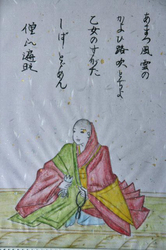 あまつ風 雲の
かよひ路 吹とぢよ
乙女のすがた
しばしとゞめん
僧正遍昭